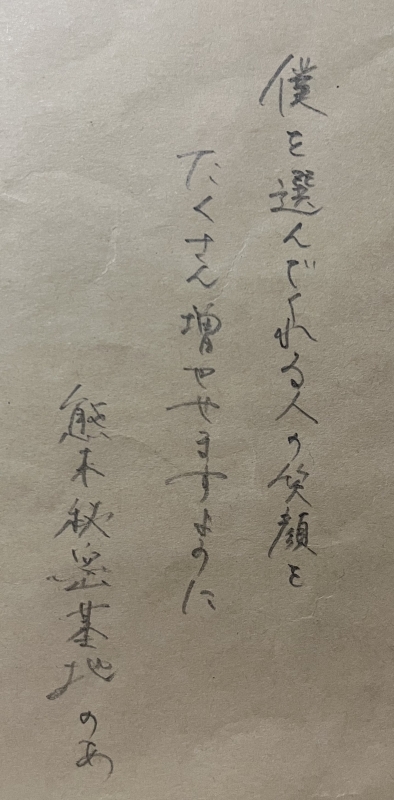 僕を選んでくれる人の笑顔を
たくさん増やせますように
熊本秘密基地のあ